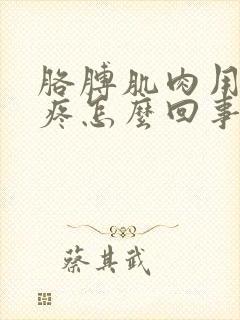 胳膊肌肉用
疼怎麼回事
蔡其武